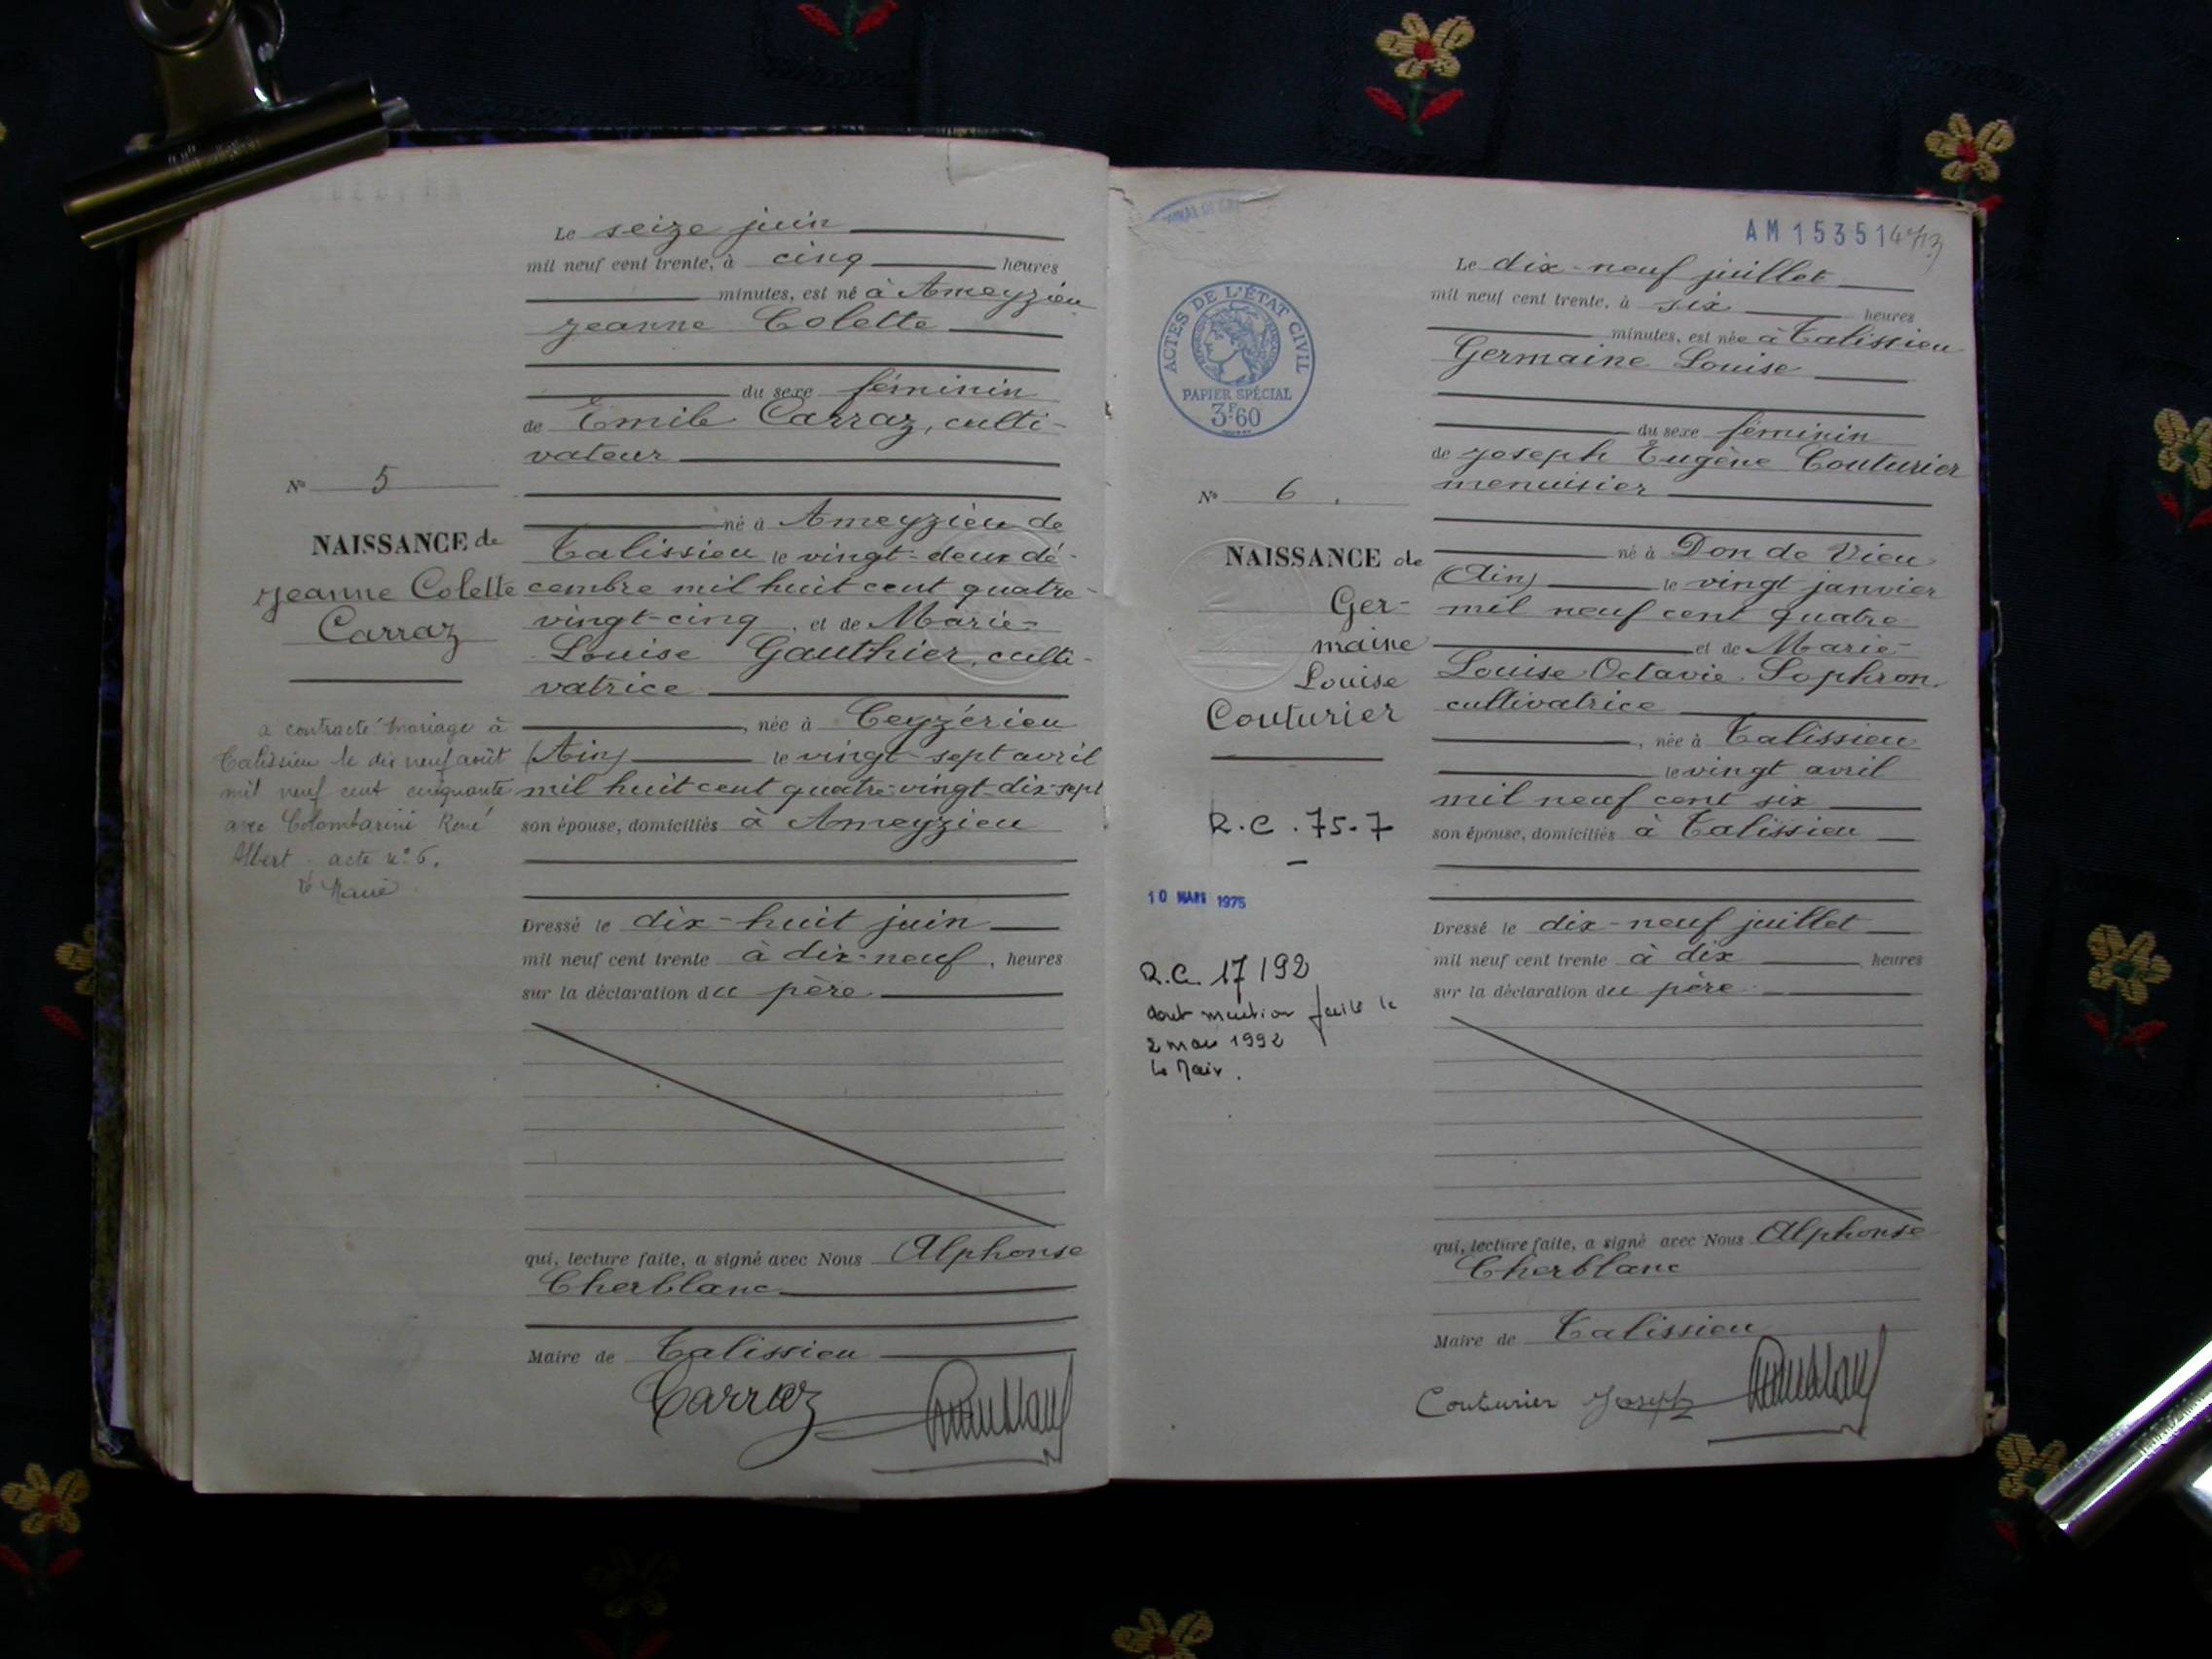 Le seize juin
mil neuf cent trente, à cinq heures
minutes, est né à Ameyzieu
Jeanne Colette
du sexe féminin
de Emile Carraz, culti-
vateur
né à Ameyzieu de
Talissieu le vingt-deux dé-
cembre mil huit cent quatre-
vingt-cinq, et de Marie-
Louise Gauthier, culti-
vatrice
, née à Ceyzérieu
(Ain) le vingt-sept avril
mil huit cent quatre-vingt-dix-sept
son épouse, domiciliés à Ameyzieu
Dressé le dix-huit juin
mil neuf cent trente à dix-neuf, heures
sur la déclaration du père
qui, lecture faite, a signé avec Nous Alphonse
Cherblanc
Maire de Talissieu
Carraz
N° 5
NAISSANCE de
Jeanne Colette
Carraz
a contracté mariage à
Talissieu le dix neuf août
mil neuf cent cinquante
avec Colombarini René
Albert. acte n° 6.
AM 153514
ACTES DE L'ÉTAT CIVIL
PAPIER SPÉCIAL
3F60
N° 6.
NAISSANCE de
Ger-
maine
Louise
Couturier
R.C. 75-7
10 MARS 1975
R.C. 17/92
dont mention faite le
1992
Le dix-neuf juillet
mil neuf cent trente, à six heures
minutes, est née à Talissieu
Germaine Louise
du sexe féminin
de Joseph Eugène Couturier
menuisier
né à Don de Vieu
(Ain) le vingt janvier
mil neuf cent quatre
et de Marie-
Louise Octavie Sophron.
cultivatrice
, née à Talissieu
le vingt avril
mil neuf cent six
son épouse, domiciliés à Talissieu
Dressé le dix-neuf juillet
mil neuf cent trente à dix heures
sur la déclaration du père
qui, lecture faite, a signé avec Nous Alphonse
Cherblanc
Maire de Talissieu
Couturier Joseph